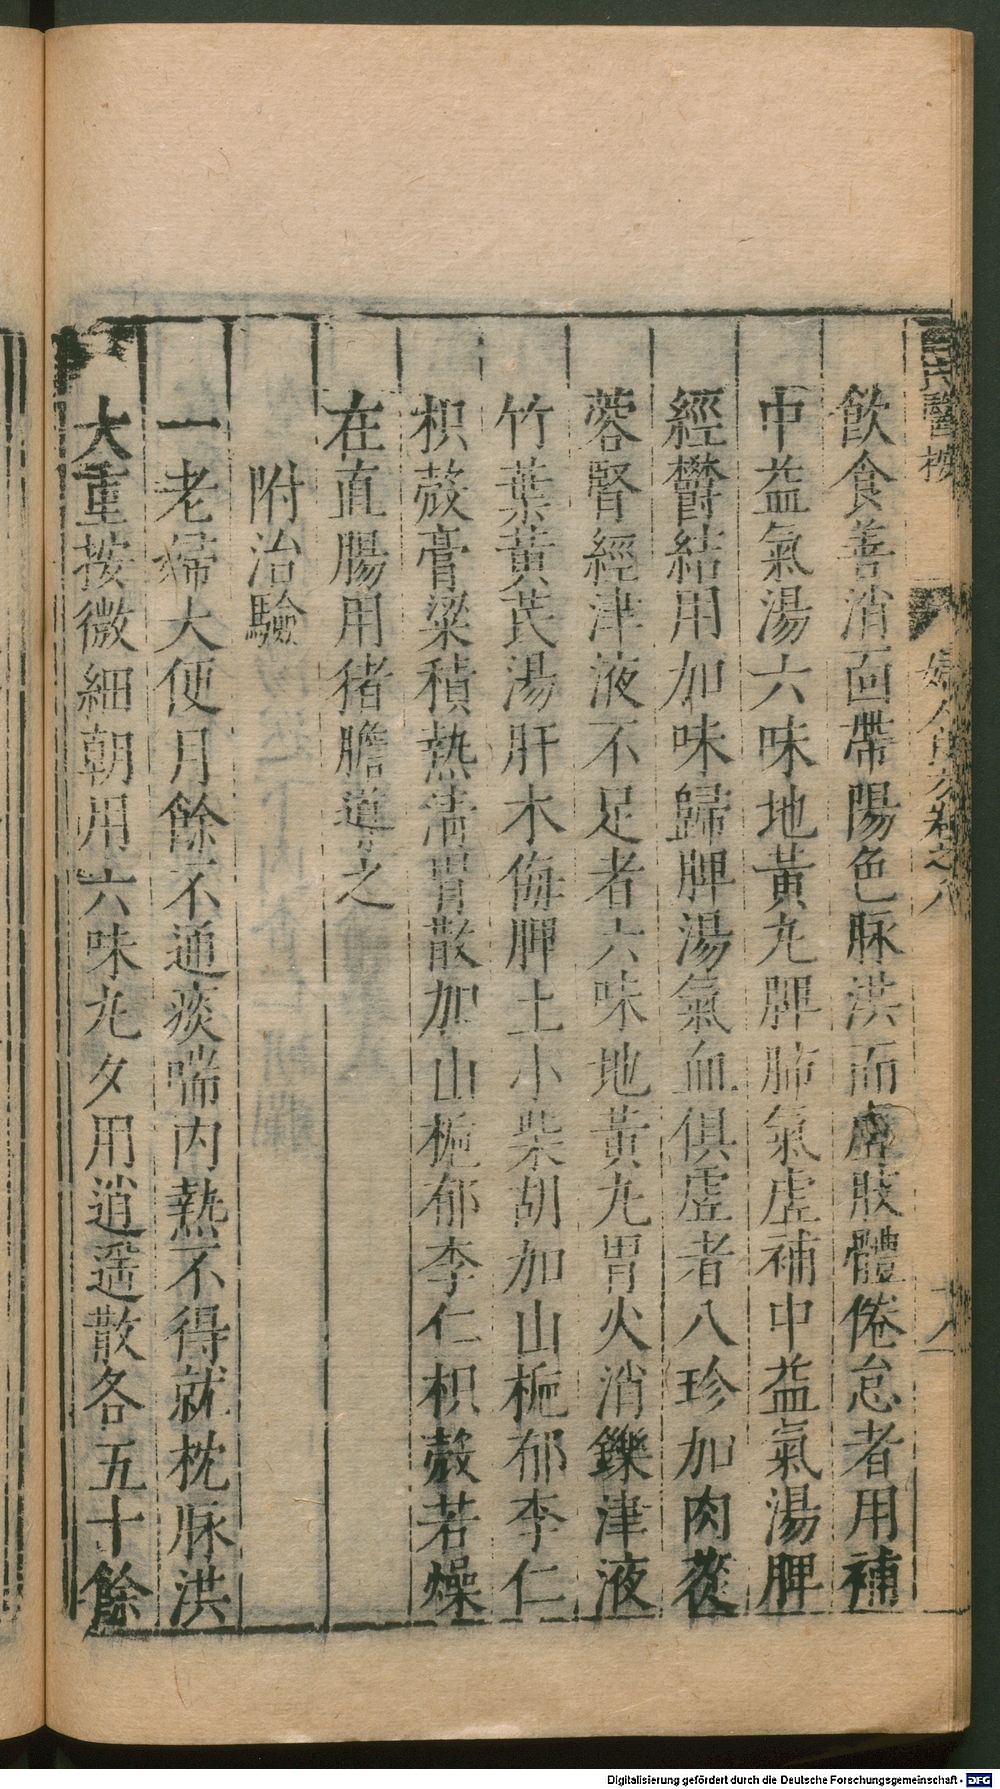 飲食善消面帶陽色脉洪而虛肢體倦怠者用補
中益氣湯六味地黃丸脾肺氣虛補中益氣湯脾
經鬱結用加味歸脾湯氣血俱虛者八珍加肉蓯
蓉腎經津液不足者六味地黃丸胃火消鑠津液
竹葉黃芪湯肝木侮脾土小柴胡加山梔郁李仁
枳殼膏粱積熱清胃散加山梔郁李仁枳殼若燥
在直腸用猪膽導之
附治驗
一老婦大便月餘不通痰喘内熱不得就枕脉洪
大重按微細朝用六味丸夕用逍遥散各五十餘
氏醫按
婦人良方卷之八
Digitalisierung gefördert durch die Deutsche Forschungsgemeinschaft - DFG